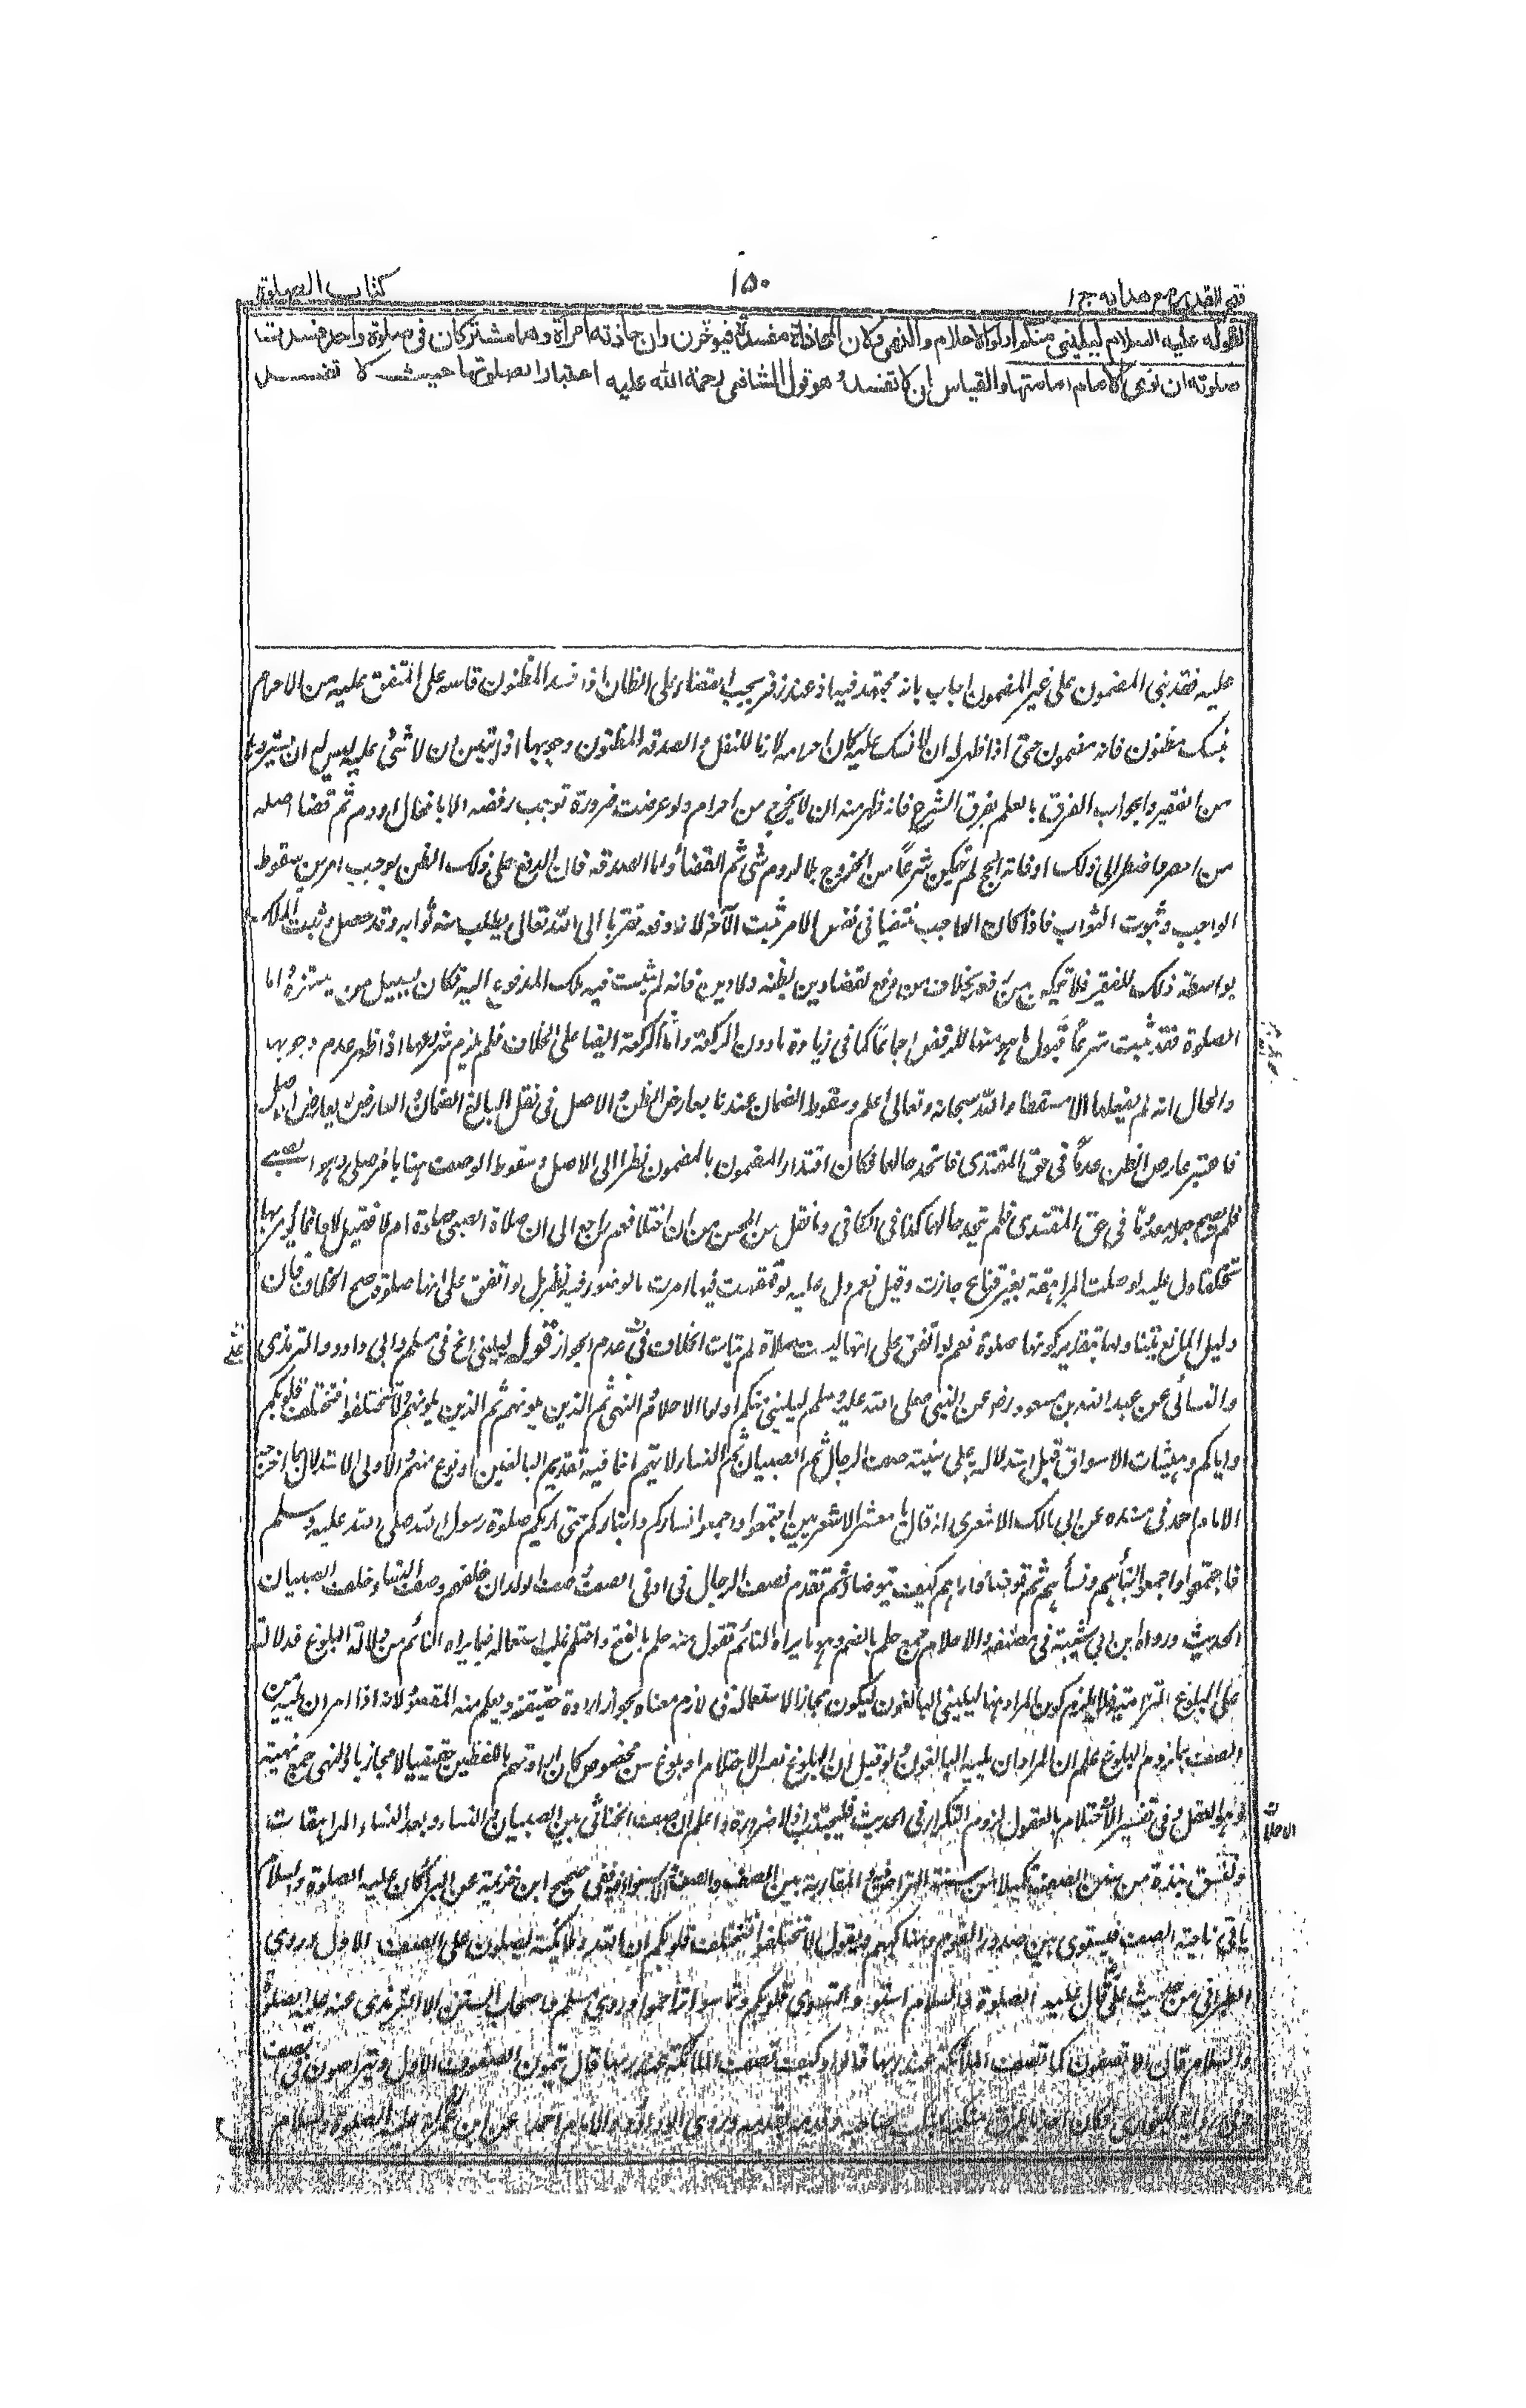 فتح القدیر مع هدایه ج ۱
۱۵۰
كتاب الصلوة
لقوله عليه السلام ليليني منكم اولوا الاحلام والنهى وكان المحاذاة مفسدة فيوخرن وان حاذته امرأة وهما مشتركان في صلوة واحدة فسدت
صلوته ان نوى الامام امامتها والقياس ان لا تفسد وهو قول الشافعي رحمة الله عليه اعتبارا بصلوتها حيث لا تفسد
عليه فقد بنى المضمون على غير المضمون اجاب بانه مجتهد فيه اذ عند زفر يجب القضاء على الظان اذا فسد المظنون قاسه على المتفق عليه من الاحرام
بنسك مظنون فانه مضمون حتى اذا ظهر له ان لا نسك عليه كان احرامه لازما للنفل والصدقه المظنون وجوبها اذا تبين ان لا شئ عليه ليس له ان يستردها
من الفقير والجواب الفرق بالعلم بفرق الشرع فانه ظهر منه ان لا يخرج من احرام ولو عرضت ضرورة توجب رفضه الا بافعال او دم ثم قضا اصله
من احصر فاضطر الى ذلك او فاته الحج لم يمكن شرعا من الخروج بلا لزوم شئ ثم القضأ واما الصدقه فان الدفع على ذلك الظن يوجب امرين سقوط
الواجب وثبوت الثواب فاذا كان الواجب منتفيا في نفس الامر ثبت الآخر لانه دفعه تقربا الى الله تعالى يطلب منه ثوابه وقد حصل وثبت الملك
بواسطة ذلك للفقير فلا يمكن من رفعه بخلاف من دفع لقضا دين يظنه ولا دين فانه لم يثبت فيه ملك المدفوع اليه فكان بسبيل من يستنزه اما
الصلوة فقد ثبت شرعا قبول ما هو منها للرفض اجماعا كما في زيادة ما دون الركعة واما الركعة ايضا على الخلاف فلم يلزم شرعها اذا ظهر عدم وجوبها
والحال انه لم يفعلها الا مسقطا والله سبحانه وتعالى اعلم وسقوط الضمان عندنا بعارض الظن والاصل في نفل البالغ الضمان والعارض لا يعارض الاصل
فاعتبر عارض الظن عدما في حق المقتدى فاتحد حالهما فكان اقتدار المضمون بالمضمون نظرا الى الاصل وسقوط الوصف هنا بامر اصلى وهو الصبے
فلم يصح جعله معدوما في حق المقتدى فلم يتحد حالهما كذا في الكافي وما نقل من المحسن من ان اختلافهم راجع الى ان صلاة الصبى صلوة ام لا فقيل لا وانما يؤمر بها
تخلقا دل عليه لو صلت المراهقة بغير قناع جازت وقيل نعم دل عليه لو قهقهت فيها امرت بالوضوء فيه نظر بل لو اتفق على انها صلوة صح الخلاف فان
دليل المانع يتناولها بتقدير كونها صلوة نعم لو اتفق على انها ليست صلاة لم يتات الخلاف في عدم الجواز قوله ليليني الخ في مسلم وابي داود والترمذى
والنسائى عن عبد الله بن مسعود رضـ عن النبي صلى الله عليه وسلم ليلينى منكم اولوا الاحلام والنهى ثم الذين يلونهم ثم الذين يلونهم ولا تختلفوا فتختلف قلوبكم
واياكم وهيشات الاسواق قيل استدلاله به على سنية صف الرجال ثم الصبيان ثم النساء لا يتم انما فيه تقديم البالغين او نوع منهم والاولى الاستدلال بما اخرجه
الامام احمد في مسنده عن ابي مالك الاشعرى انه قال يا معشر الاشعريين اجتمعوا واجمعوا نساءكم وابناءكم حتى اريكم صلوة رسول الله صلى الله عليه وسلم
فاجتمعوا واجمعوا ابنأهم ونسأهم ثم توضأ واراهم كيف يتوضأ ثم تقدم فصف الرجال في ادنى الصف وصف الولدان خلفهم وصف النساء خلف الصبيان
الحديث ورواه ابن ابي شيبة في مصنفه والاحلام جمع حلم بالضم وهو ما يراه النائم تقول منه حلم بالفتح واحتلم غلب استعماله فيما يراه النائم من دلالة البلوغ فدلالته
على البلوغ التزامية فلا يلزم كون المراد بهنا ليليني البالغون ليكون مجازا لاستعماله في لازم معناه بجواز ارادة حقيقته ويعلم منه المقصود لانه اذا امر ان يليه من
الصف ملزوم البلوغ علم ان المراد ان يليه البالغون ولو قيل ان البلوغ نفس الاحتلام او بلوغ سن مخصوص كان ارادتهم باللفظين حقيقيا لا مجازيا والنهى جمع نهية
وهو العقل وفي تفسير الاحتلام بالعقول لزوم التكرار في الحديث فليجتنب اذ لا ضرورة واعلم ان صف الخناثى بين الصبيان والنساء وبعد النساء المراهقات
ولنسق نبذة من سنن الصف تكميلا من سنته التراص فيه والمقاربة بين الصف والصف والاستواء فيه ففي صحيح ابن خزيمة عن البرأ كان عليه الصلوة والسلام
ياتي ناحية الصف فيسوى بين صدور القوم ومناكبهم ويقول لا تختلفوا فتختلف قلوبكم ان الله وملائكته يصلون على الصف الاول وروى
الطبراني من حديث على قال عليه الصلوة والسلام استووا تستوى قلوبكم وتماسوا تراحموا وروى مسلم واصحاب السنن الا الترمذى عنه عليه الصلوة
والسلام قال الا تصفون كما تصف الملائكة عند ربها قالوا وكيف تصف الملائكة عند ربها قال يتمون الصفوف الاول ويتراصون في الصف